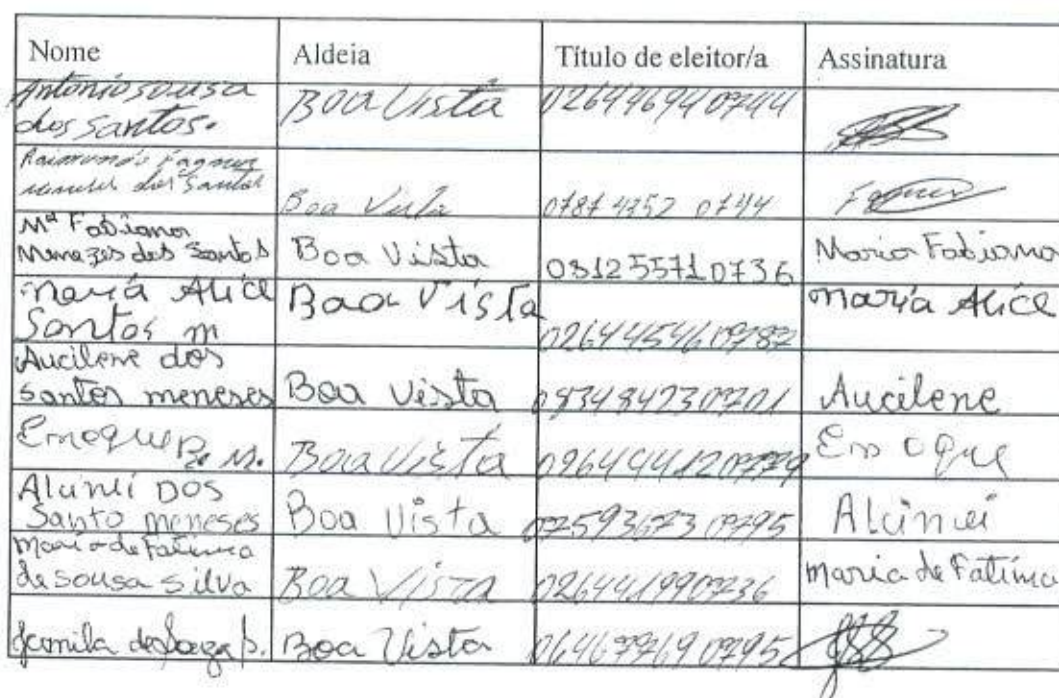 Nome Aldeia Título de eleitor/a Assinatura
Antonio sousa
dos santos. Boa Vista 026446940744
Raimundo Fagner
dos Santos Boa Vista 0787 4352 0744 Fagner
Mª Fabiana
Menezes dos Santos Boa Vista 031255710736 Maria Fabiana
Maria Alice Boa Vista Maria Alice
Santos m 026445460787
Aucilene dos
santos meneses Boa Vista Aucilene
Enoque B. M. Boa Vista Enoque
Alcinei DOS
Santo meneses Boa Vista 075936730795 Alcinei
Maria de Fatima
de sousa silva Boa Vista 026441990736 Maria de Fatima
Jamila de Souza S. Boa Vista 064679690795